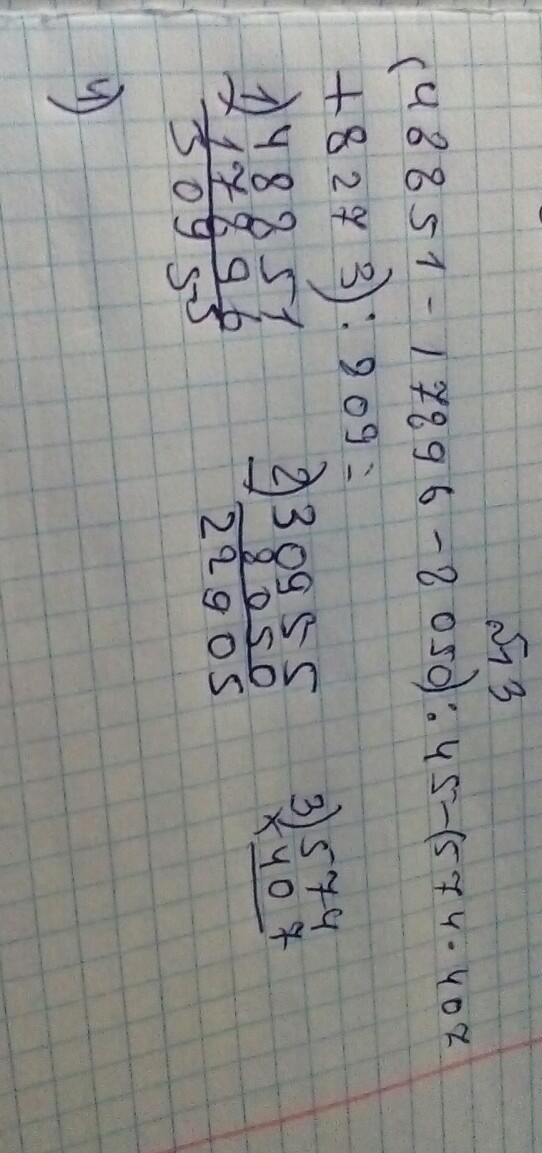 №3
(48851-17896-8050):45-(574·407
+8273):809=
1) 48851
- 17896
30955
2) 30955
- 8050
22905
3) 574
× 407
4)